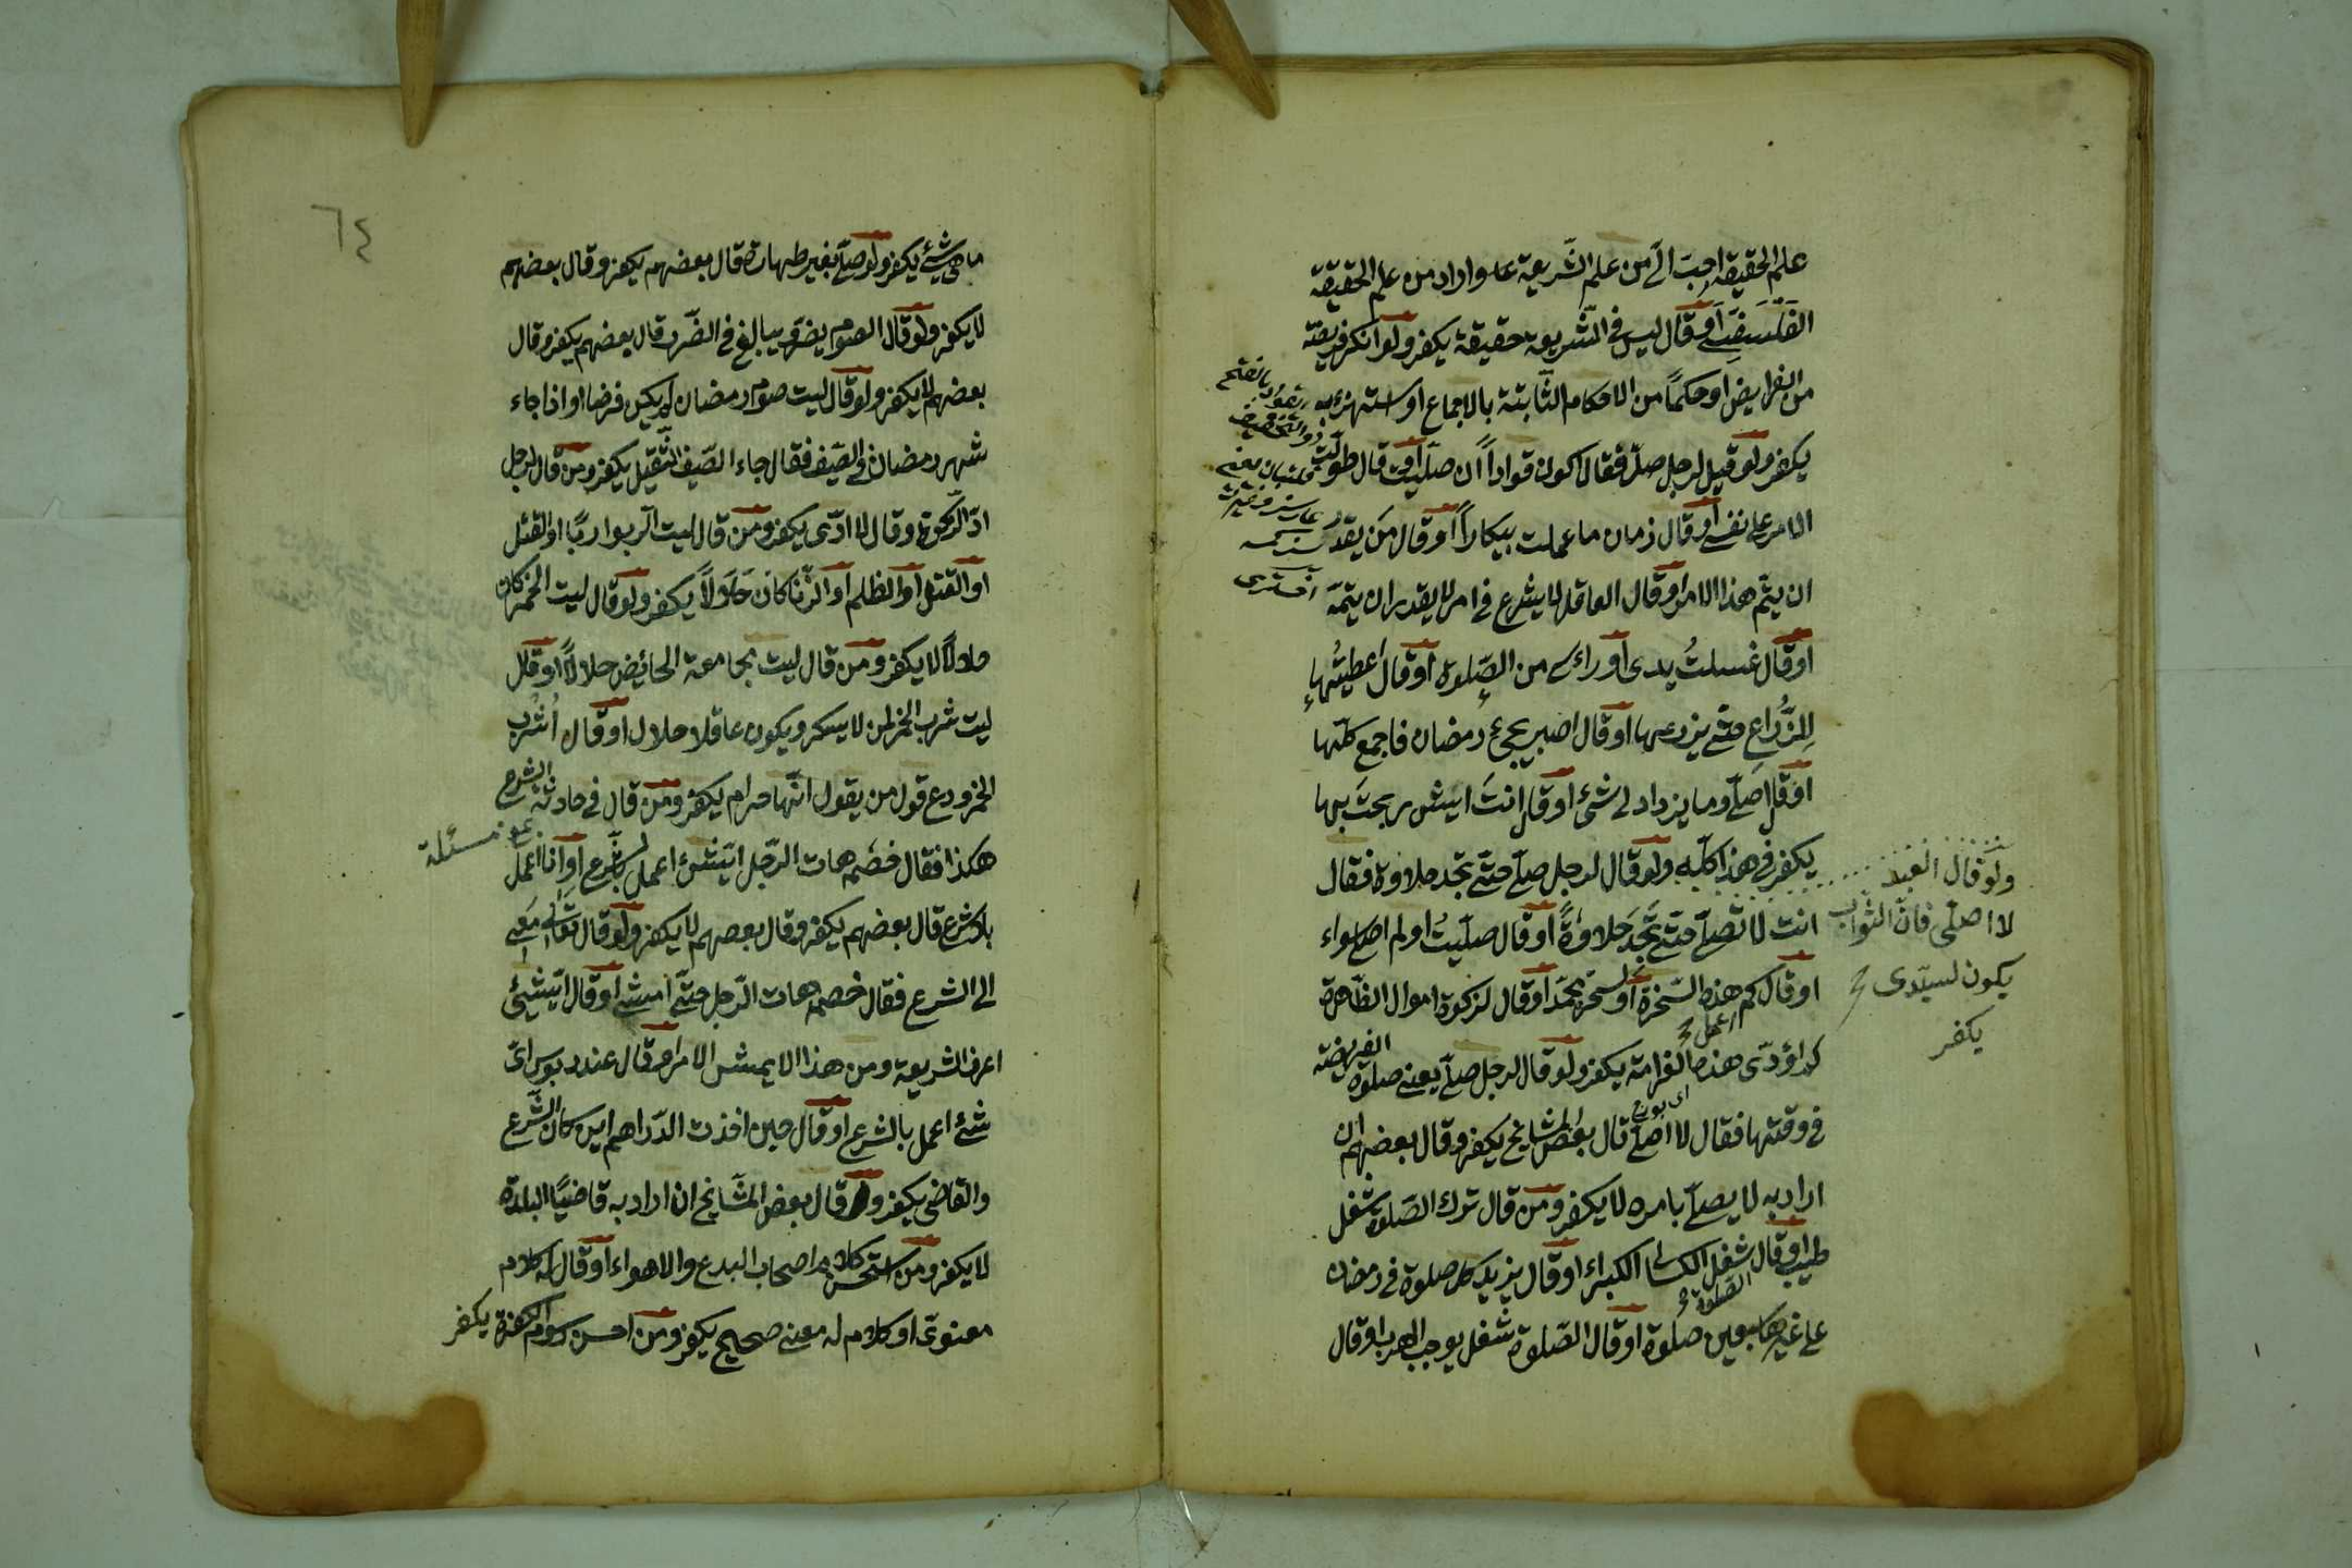 علم الحقيقة احبّ الىّ من علم الشّريعة عا واراد من علم الحقيقة
الفلسفىّ او قال ليس فى الشّريعة حقيقة يكفر ولو انكر فريضة
من الفرايض او حكمًا من الاحكام الثّابتة بالاجماع او استهزئ به
يكفر ولو قيل لرجل صلّ فقال اكون قوادًا ان صلّيت او قال طوّلت
الامر على نفسى او قال زمان ما عملت بيكارًا او قال مَن يقدر
ان يتمّ هذا الامر او قال العاقل لا يشرع فى امر لا يقدر ان يتمّه
او قال غسلتُ يدى او راءسى من الصّلوة او قال اعطيتُها
للزّرّاع حتّى يزرعها او قال اصبر يجئ رمضان فاجمع كلّها
او قال اصلّى وما يزداد لى شئ او قال انتَ ايش ربحتَ بها
يكفر فى هذا كلّه ولو قال لرجل صلّ حتّى تجد حلاوة فقال
انت لا تصلّ حتّى تَجد حَلاوةً او قال صلّيتُ اولم اصلّ سواء
او قال كم هذه السّخرة او لسخرة تجد او قال لزكوة اموال الظّاهرة
كم اؤدّى هذه الغرامة يكفر ولو قال لرجل صلّ يعنى صلوة الفريضة
فى وقتها فقال لا اصلّى قال بعض المشايخ يكفر وقال بعضهم ان
اراد به لا يصلّى بامره لا يكفر ومن قال ترك الصّلوة شغل
طيب او قال شغل الكسالى الكبراء او قال يزيد كل صلوة فى رمضان
على غيرها سبعين صلوة او قال الصّلوة شغل يوجب الهرب او قال
ولو قال العبد
لا اصلّى فانّ الثّواب
يكون لسيّدى
يكفر
٦٤
ماهى شئ يكفر ولو صلّى بغير طهارة قال بعضهم يكفر وقال بعضهم
لا يكفر ولو قال الصوم يضرّ ويبالغ فى الضّرر قال بعضهم يكفر وقال
بعضهم لا يكفر ولو قال ليت صوم رمضان لم يكن فرضا او اذا جاء
شهر رمضان فى الصّيف فقال جاء الضّيف الثّقيل يكفر ومن قال لرجل
ادّ الزّكوة وقال لا ادّى يكفر ومن قال ليت الرّبوا ربًا او القتل
او القتل او الظلم او الزّنا كان حَلَالاً يكفر ولو قال ليت الخمر كان
حلالاً لا يكفر ومن قال ليت مجامعة الحائض حلالاً او قال
ليت شرب الخمر لمن لا يسكر ويكون عاقلا حلال او قال اُشرب
الخمر ودع قول من يقول انّها حرام يكفر ومن قال فى حادثة الشرع
هكذا فقال خصمه هات الرّجل ايّشئ اعمل بالشّرع او انا اعمل
بالشرع قال بعضهم يكفر وقال بعضهم لا يكفر ولو قال تعال معى
الى الشرع فقال خصمه هات الرّجل حتّى امشى او قال ايّشئ
اعرف الشريعة ومن هذا لا يمشى الامر او قال عندى دبوس اىّ
شئ اعمل بالشرع او قال حين اخذت الدّراهم اين كان الشّرع
والقاضى يكفر و قال بعض المشايخ ان اراد به قاضى البلدة
لا يكفر ومن استحسن كلام اصحاب البدع والاهواء او قال له كلام
معنوىّ او كلام له معنى صحيح يكفر ومن احسن رسوم الكفرة يكفر
مسئلة